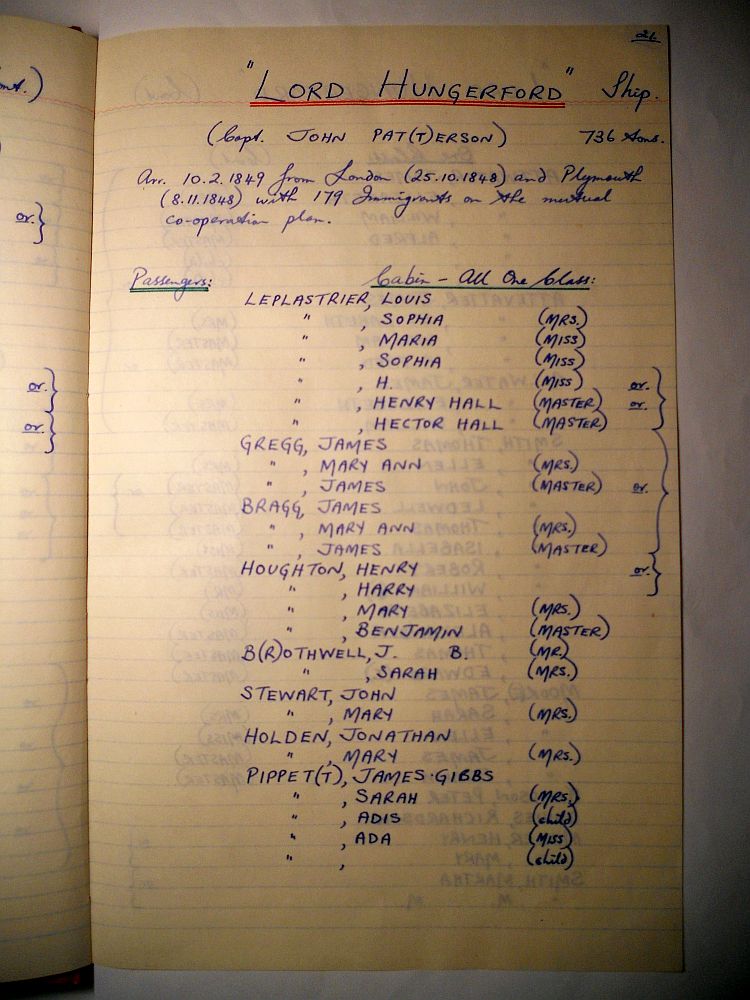 21.
"LORD HUNGERFORD" Ship.
(Capt. JOHN PAT(T)ERSON) 736 tons.
Arr. 10.2.1849 from London (25.10.1848) and Plymouth
(8.11.1848) with 179 Immigrants on the mutual
co-operation plan.
Passengers: Cabin - All One Class:
LEPLASTRIER, LOUIS
" , SOPHIA (MRS.)
" , MARIA (MISS)
" , SOPHIA (MISS)
" , H. (MISS) or. }
" , HENRY HALL (MASTER) or. }
" , HECTOR HALL (MASTER)
GREGG, JAMES
" , MARY ANN (MRS.)
" , JAMES (MASTER) or. }
BRAGG, JAMES
" , MARY ANN (MRS.)
" , JAMES (MASTER)
HOUGHTON, HENRY or. }
" , HARRY
" , MARY (MRS.)
" , BENJAMIN (MASTER)
B(R)OTHWELL, J. B. (MR.)
" , SARAH (MRS.)
STEWART, JOHN
" , MARY (MRS.)
HOLDEN, JONATHAN
" , MARY (MRS.)
PIPPET(T), JAMES GIBBS
" , SARAH (MRS.)
" , ADIS (child)
" , ADA (MISS)
" , (child)
or. }
or. }
or. }